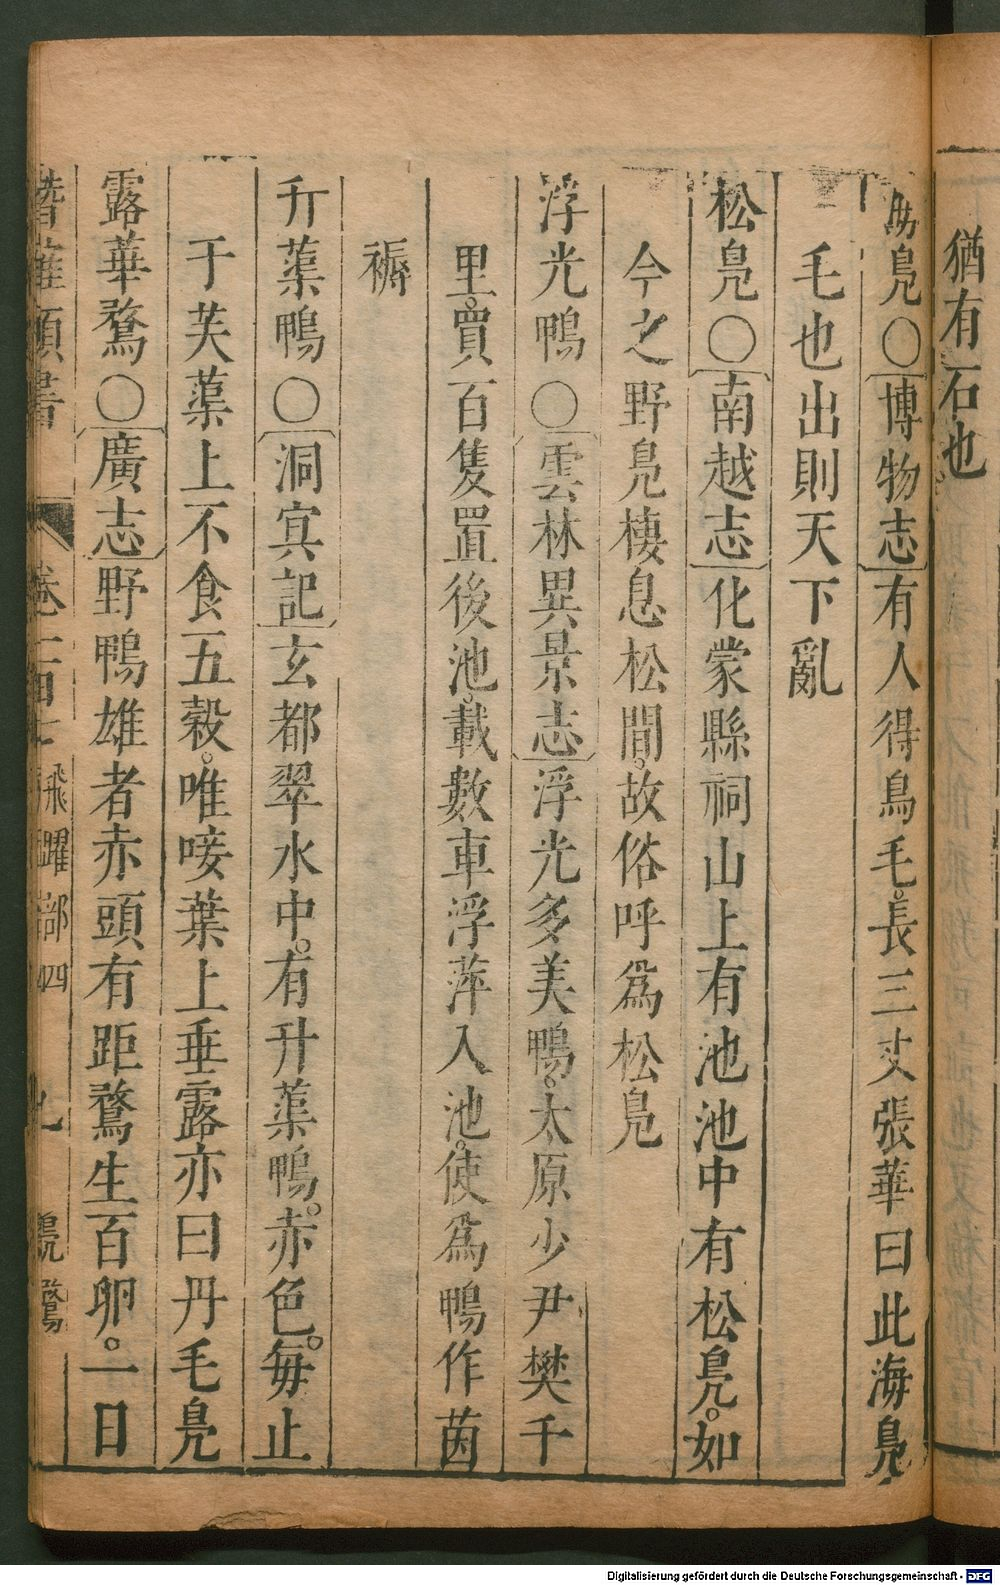 猶有石也
海鳧○博物志有人得鳥毛。長三丈張華曰此海鳧
毛也出則天下亂
松鳧○南越志化蒙縣祠山上有池池中有松鳧。如
今之野鳧棲息松間。故俗呼爲松鳧
浮光鴨○雲林異景志浮光多美鴨。太原少尹樊千
里。賣百隻置後池。載數車浮萍入池。使爲鴨作茵
褥
升蕖鴨○洞冥記玄都翠水中。有升蕖鴨。赤色。每止
于芙蕖上不食五穀。唯唼葉上垂露亦曰丹毛鳧
露華鶩○廣志野鴨雄者赤頭有距鶩生百卵。一日
潛確類書 卷一百七 飛躍部四 九 鳧鶩
Digitalisierung gefördert durch die Deutsche Forschungsgemeinschaft - DFG